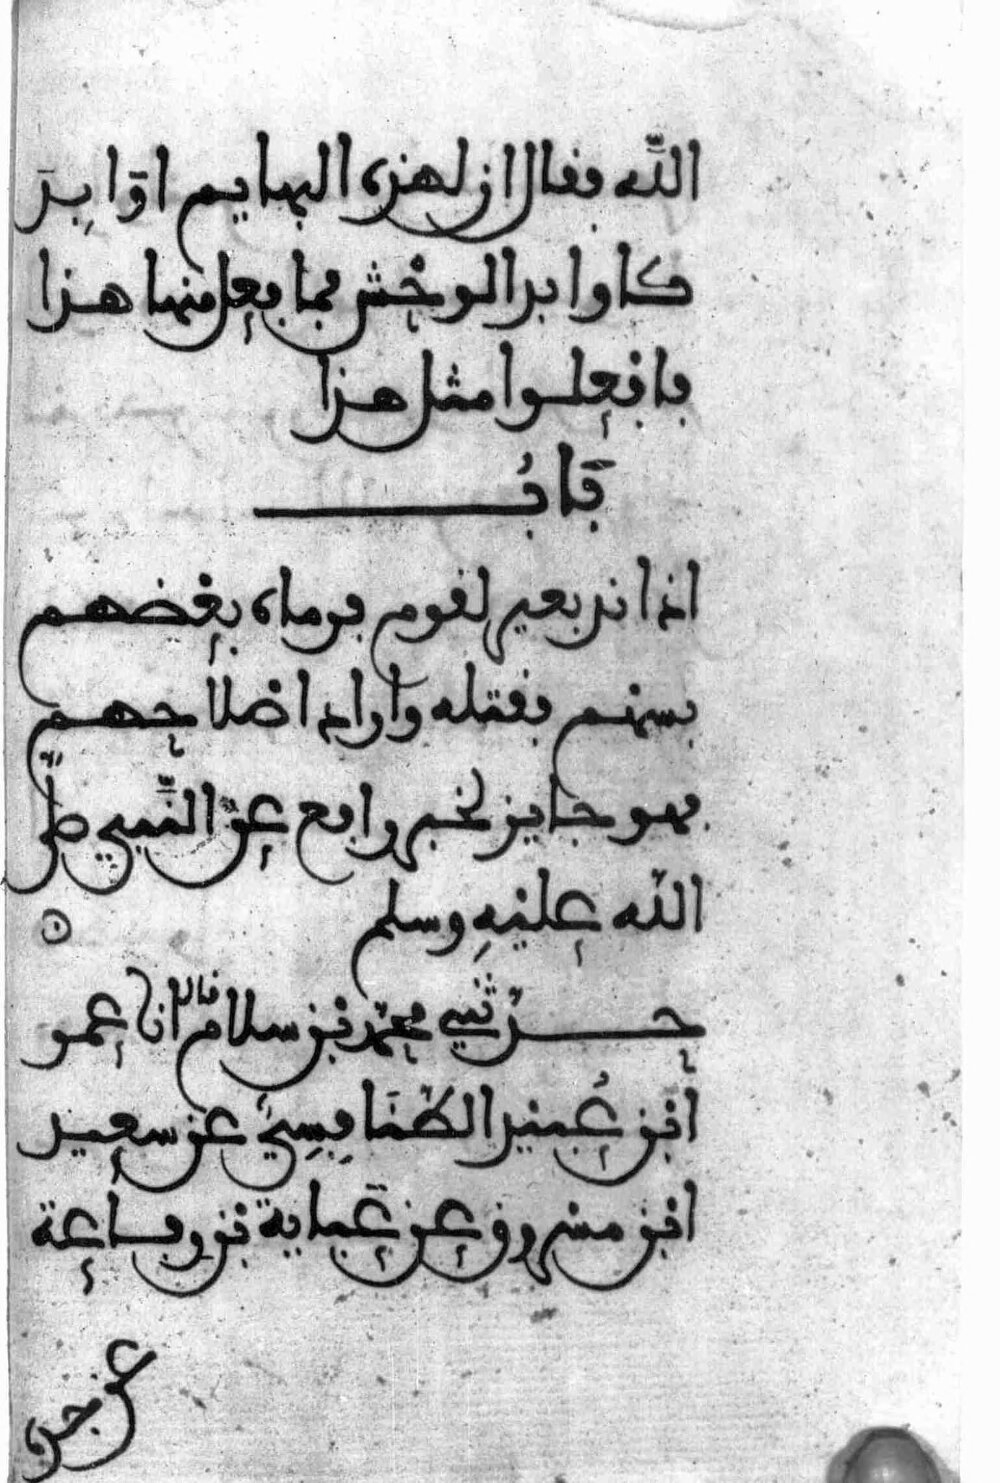 الله فقال ان لهذه البهايم اوابد
كاوابد الوحش فما فعل منها هذا
فافعلوا مثل هذا
باب
اذا ند بعير لقوم فرماه بعضهم
بسهم فقتله واراد اصلاحهم
فهو جايز لخبر رافع عن النبي صلى
الله عليه وسلم
حدثني محمد بن سلام قال انا عمر
ابن عبيد الطنافسي عن سعيد
ابن مسروق عن عباية بن رفاعة
عن جده